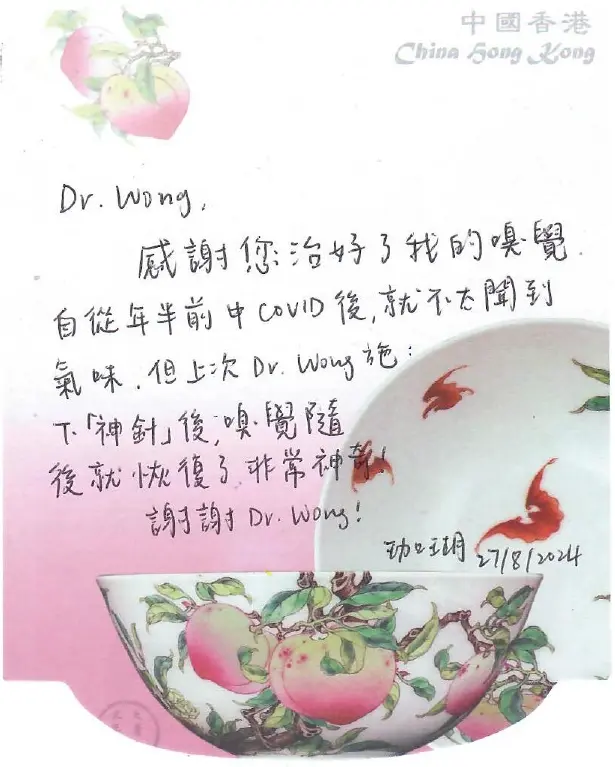 中國香港
China Hong Kong
Dr. Wong,
感謝您治好了我的嗅覺.
自從年半前中COVID後,就不太聞到
氣味.但上次Dr. Wong施
下「神針」後,嗅覺隨
後就恢復了,非常神奇!
謝謝Dr. Wong!
27/8/2024